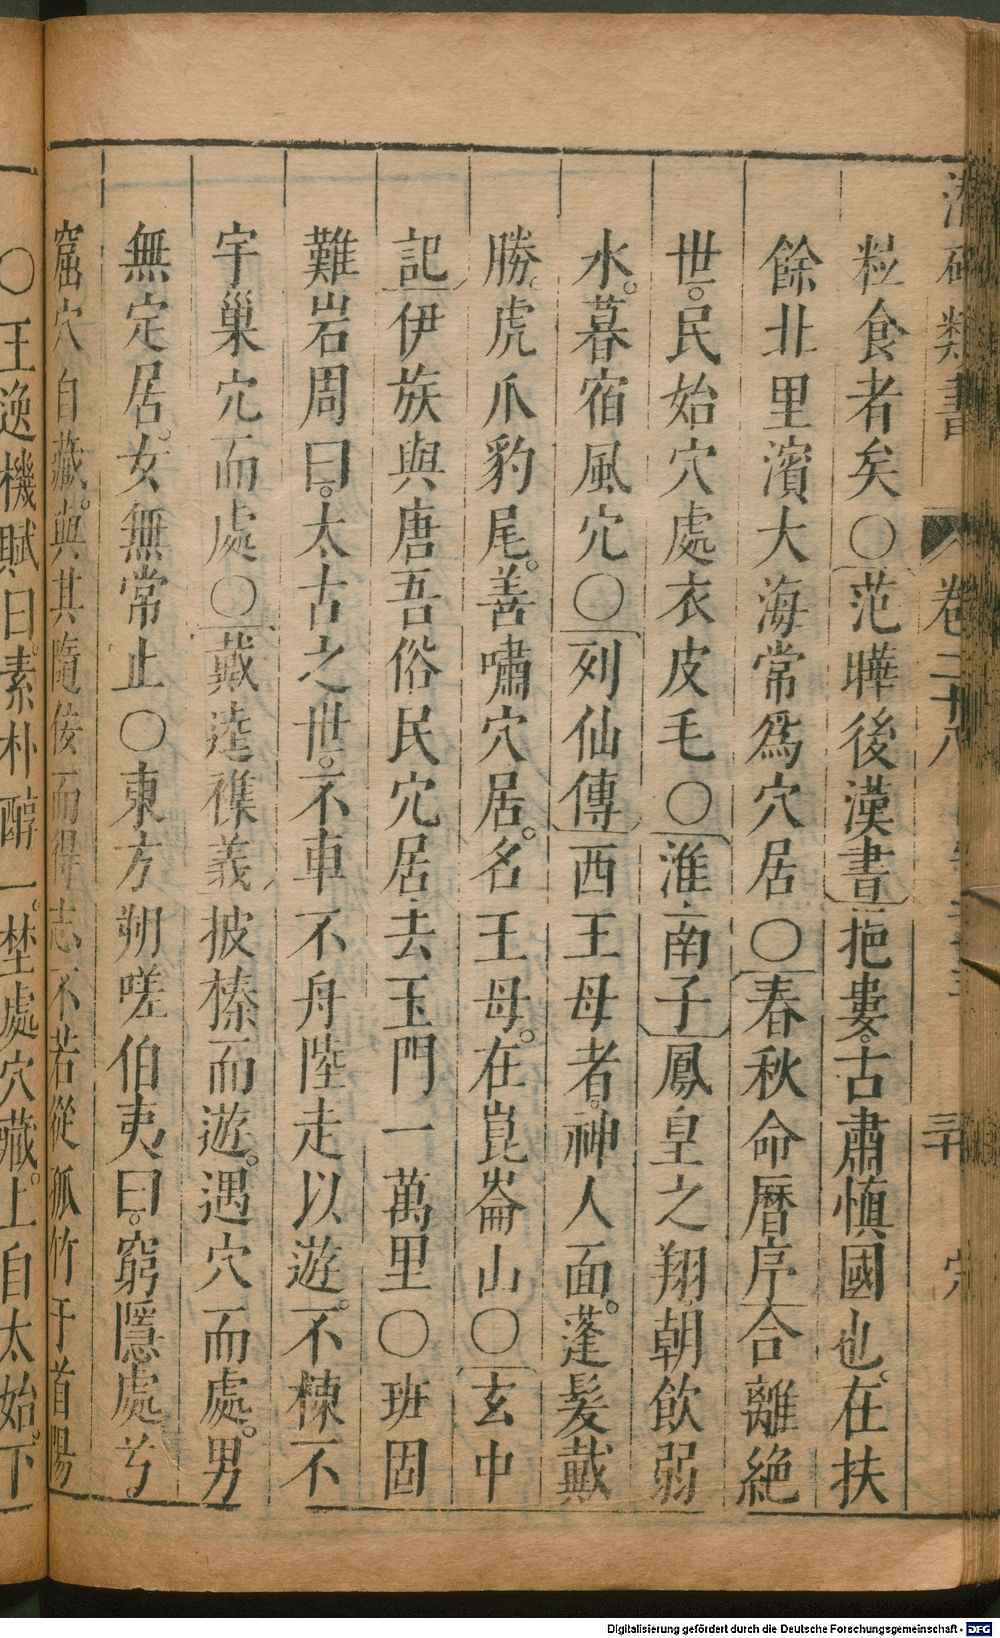 潛確類書 卷二十八 三十 穴
粒食者矣○范曄後漢書挹婁古肅慎國也在扶
餘北里濱大海常爲穴居○春秋命曆序合離絶
世民始穴處衣皮毛○淮南子鳳皇之翔朝飲弱
水暮宿風穴○列仙傳西王母者神人面蓬髮戴
勝虎爪豹尾善嘯穴居名王母在崑崙山○玄中
記伊族與唐吾俗民穴居去玉門一萬里○班固
難岩周曰太古之世不車不舟陸走以遊不棟不
宇巢穴而處○戴逵襍義披榛而遊遇穴而處男
無定居女無常止○東方朔嗟伯夷曰窮隱處兮
窟穴自藏與其隨佞而得志不若從孤竹于首陽
○王逸機賦曰素朴醇一埜處穴藏上自太始下
Digitalisierung gefördert durch die Deutsche Forschungsgemeinschaft - DFG